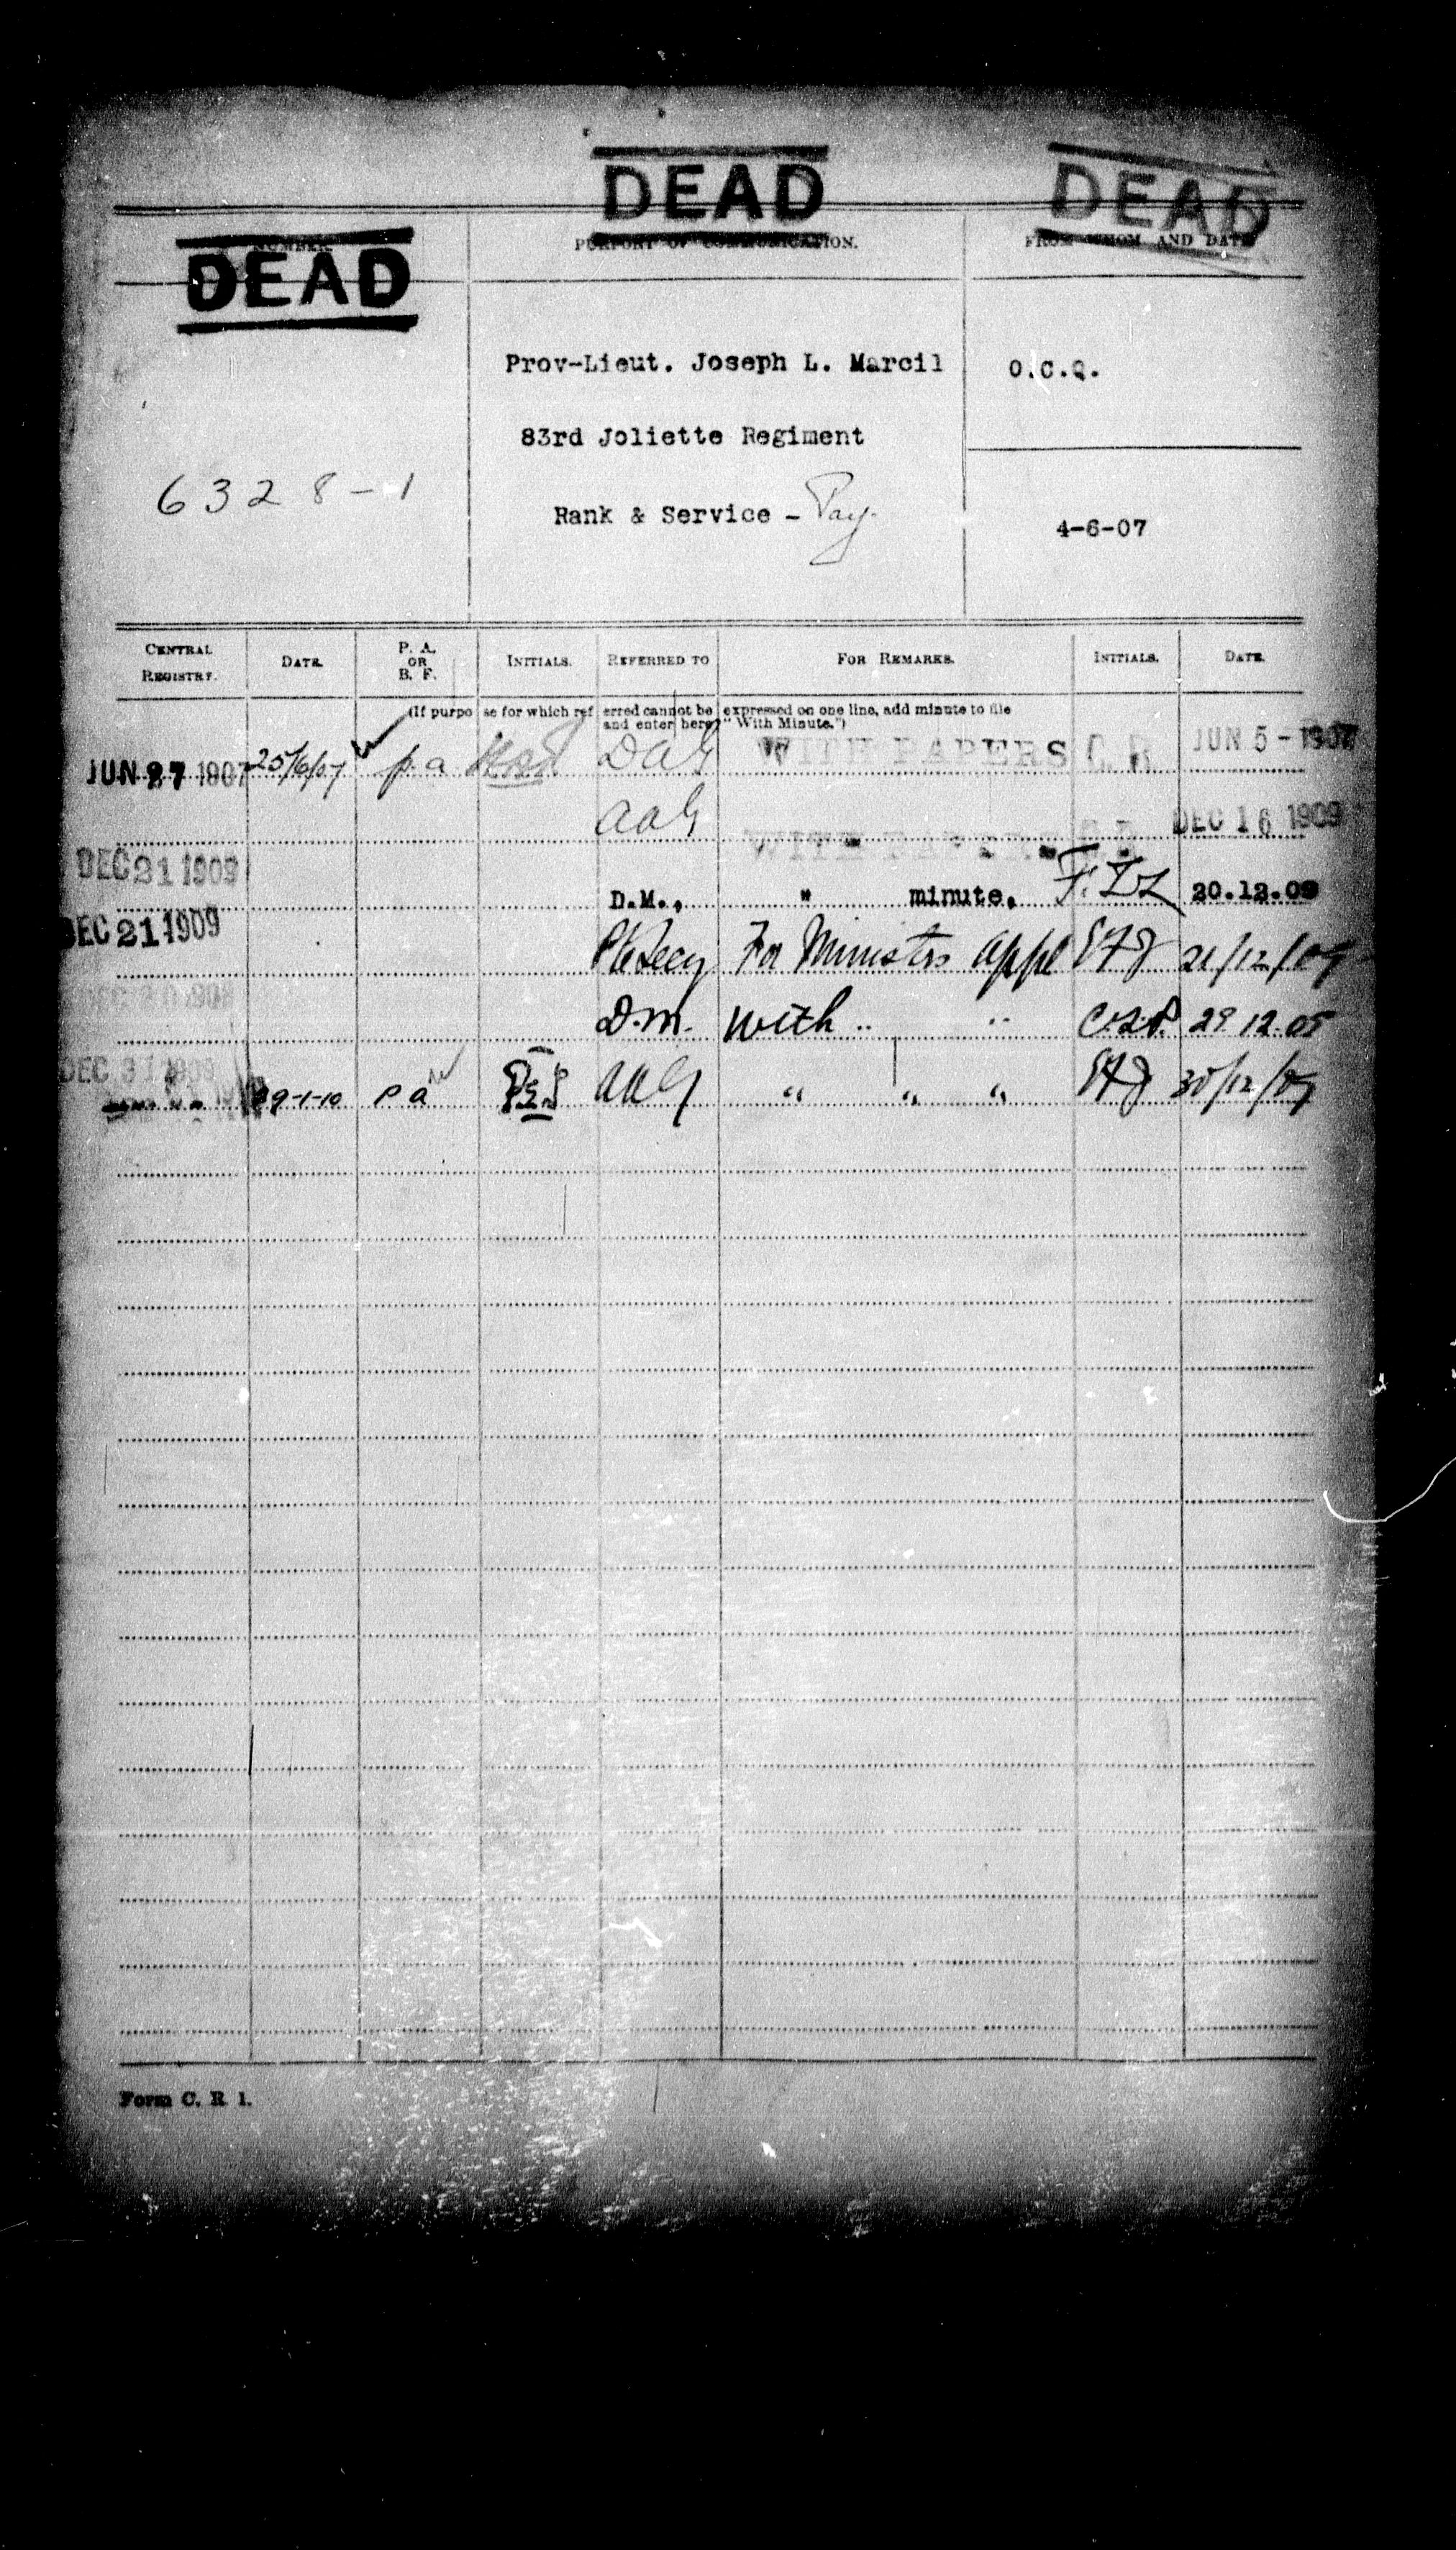 DEAD
DEAD
DEAD
NUMBER.
PURPORT OF COMMUNICATION.
FROM WHOM AND DATE
Prov-Lieut. Joseph L. Marcil
O.C.Q.
83rd Joliette Regiment
6328-1
Rank & Service - Pay.
4-6-07
CENTRAL REGISTRY.
DATE.
P. A. OR B. F.
INITIALS.
REFERRED TO
FOR REMARKS.
INITIALS.
DATE.
(If purpose for which referred cannot be expressed on one line, add minute to file
and enter here "With Minute.")
JUN 27 1907 25/6/07 p.a DAG WITH PAPERS C.R. JUN 5-1907
AAG WITH PAPERS C.R. DEC 16 1909
DEC 21 1909
D.M., " minute. 20.12.09
DEC 21 1909
For Ministers appl EFJ 21/12/09
D.M. With " " 29.12.09
DEC 31 1909
29-1-10 pa AAG " " " EFJ 30/12/09
Form C. R 1.